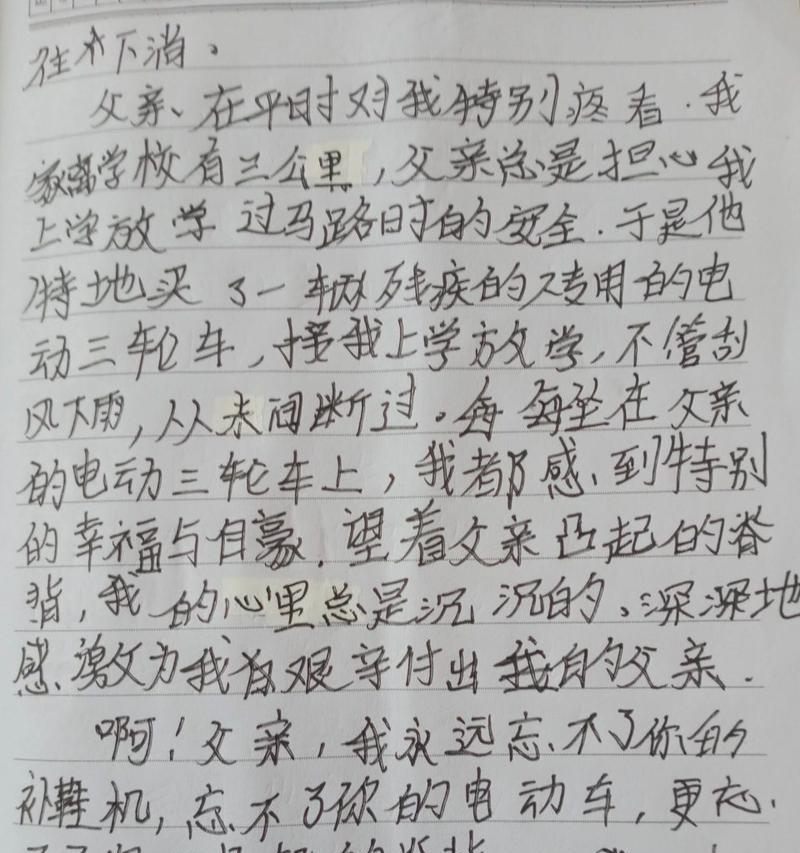 往下淌。
父亲、在平时对我特别疼着.我
家离学校有三公里,父亲总是担心我
上学放学过马路时的安全.于是他
特地买了一辆残疾的专用的电
动三轮车,接我上学放学,不管刮
风下雨,从未间断过。每每坐在父亲
的电动三轮车上,我都感到特别
的幸福与自豪.望着父亲凸起的脊
背,我的心里总是沉沉的、深深地
感激父为我艰辛付出我的父亲.
啊!父亲,我永远忘不了你的
补鞋机,忘不了你的电动车,更忘